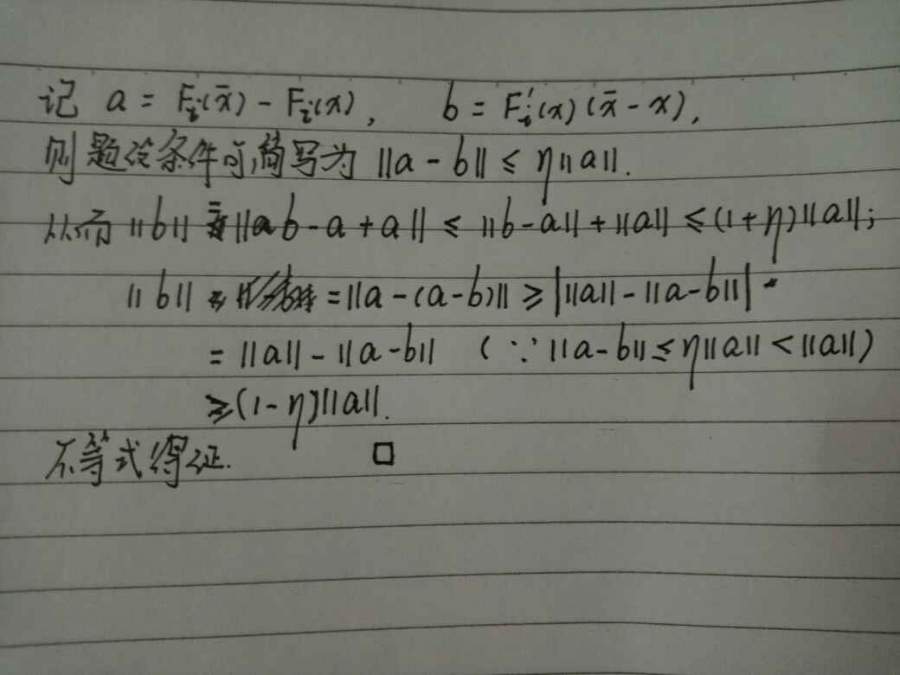 记 a = Fᵢ(x̄) - Fᵢ(x), b = Fᵢ'(x)(x̄ - x),
则题设条件可简写为 ||a - b|| ≤ η||a||.
从而 ||b|| = ||b - a + a|| ≤ ||b - a|| + ||a|| ≤ (1 + η)||a||;
||b|| = ||a - (a - b)|| ≥ | ||a|| - ||a - b|| |
= ||a|| - ||a - b|| (∵ ||a - b|| ≤ η||a|| < ||a||)
≥ (1 - η)||a||.
不等式得证. □